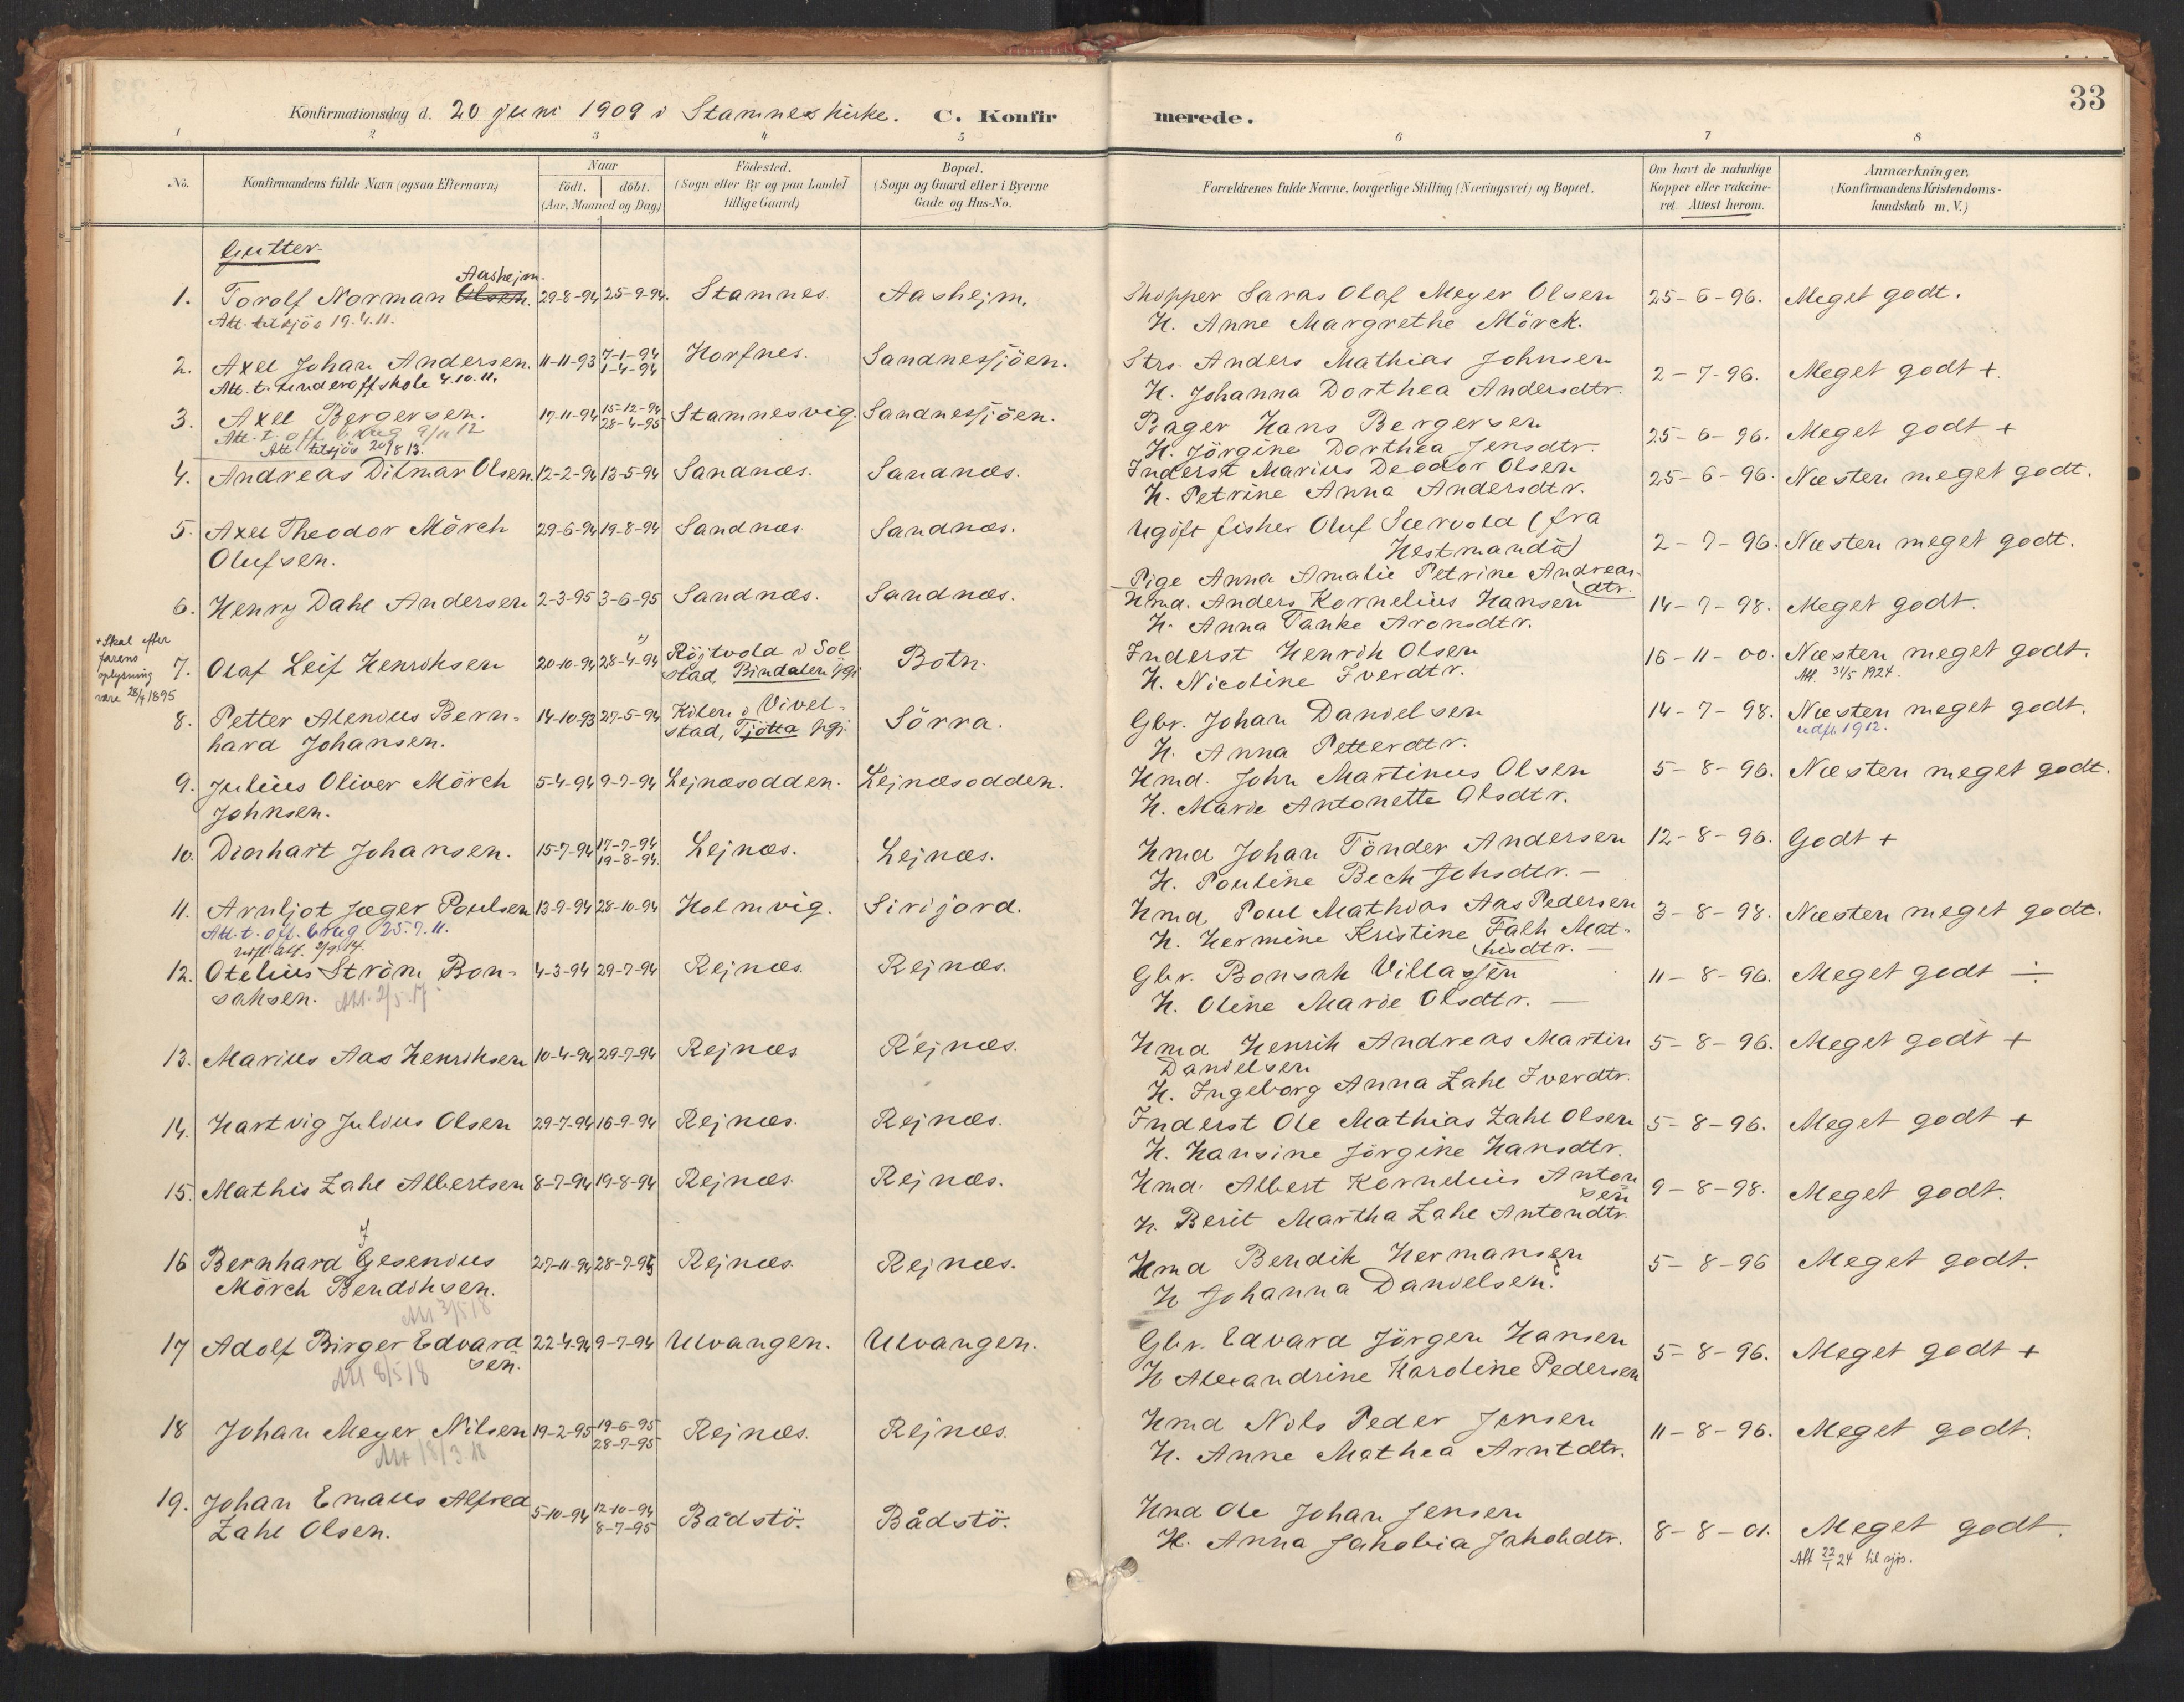 33
Konfirmationsdag d. 20 juni 1909 i Stamnes kirke. C. Konfirmerede.
1 2 3 4 5 6 7 8
No.
Konfirmandens fulde Navn (ogsaa Efternavn)
Naar
födt. döbt.
(Aar, Maaned og Dag)
Födested.
(Sogn eller By og paa Landet
tillige Gaard)
Bopæl.
(Sogn og Gaard eller i Byerne
Gade og Hus-No.
Forældrenes fulde Navne, borgerlige Stilling (Næringsvei) og Bopæl.
Om havt de naturlige
Kopper eller vakcine-
ret. Attest herom.
Anmærkninger.
(Konfirmandens Kristendoms-
kundskab m. V.)
Gutter
Aashejm.
1. Torolf Norman Olsen. 29-8-94 25-9-94. Stamnes. Aashejm. Skopper Saras Olaf Meyer Olsen 25-6-96. Meget godt.
Att. tilsjös 19.4.11. H. Anne Margrethe Mörck.
2. Axel Johan Andersen. 11-11-93 7-1-94 Horfnes. Sandnessjöen. Strs. Anders Mathias Johnsen 2-7-96. Meget godt +.
1-4-94
Att. t. underoffskole 4.10.11. H. Johanna Dorthea Andersdtr.
3. Axel Bergersen. 17-11-94 15-12-94 Stamnesvig. Sandnessjöen. Bager Hans Bergersen 25-6-96. Meget godt +
28-4-95
Att. t. off. brug 9/11 12 H. Jörgine Dorthea Jensdtr.
Att. tilsjös 20/8 13.
4. Andreas Ditmar Olsen. 12-2-94 13-5-94 Sandnæs. Sandnæs. Inderst Marius Deodor Olsen 25-6-96. Næsten meget godt.
H. Petrine Anna Andersdtr.
5. Axel Theodor Mörch 29-6-94 19-8-94 Sandnæs Sandnæs. Ugift fisker Oluf Særvola (fra 2-7-96. Næsten meget godt.
Olufsen. Hestmandö)
Pige Anna Amalie Petrine Andreas-
dtr.
6. Henry Dahl Andersen 2-3-95 3-6-95 Sandnæs. Sandnæs. Hmd. Anders Kornelius Hansen 14-7-98. Meget godt.
H. Anna Tanke Aronsdtr.
+ Skal efter
farens
oplysning
være 28/4 1895
7. Olaf Leif Henriksen 20-10-94 28-4-94 Röjtvola i Sol Botn. Inderst Henrik Olsen 16-11-00. Næsten meget godt.
stad, Bindalen pgj. H. Nicoline Iverdtr. Att. 31/5 1924.
8. Petter Alenius Bern- 14-10-93 27-5-94 Kilen i Vivel- Sörra. Gbr. Johan Danielsen 14-7-98. Næsten meget godt.
hard Johansen. stad, Tjötta pgj. H. Anna Petterdtr. udfl. 1912.
9. Julius Oliver Mörch 5-4-94 9-7-94 Lejnæsodden. Lejnæsodden. Hmd. John Martinus Olsen 5-8-96. Næsten meget godt.
Johnsen. H. Marie Antonette Olsdtr.
10. Diarhart Johansen. 15-7-94 17-7-94 Lejnæs. Lejnæs. Hmd Johan Tönder Andersen 12-8-96. Godt +
19-8-94. H. Pauline Bech Johsdtr. -
11. Arnljot Jæger Poulsen 13-9-94 28-10-94 Holmvig. Sirijord. Hmd. Poul Mathias Aas Pedersen 3-8-98. Næsten meget godt.
Att. t. off. brug 25.7.11. H. Hermine Kristine Falk Mat-
udfl. att. 2/9 14. hisdtr. -
12. Otelius Ström Bon- 4-3-94 29-7-94 Rejnæs. Rejnæs. Gbr. Bonsak Villassen 11-8-96. Meget godt ÷
saksen. Att. 2/5.17 H. Oline Marie Olsdtr. -
13. Marius Aas Henriksen 10-4-94 29-7-94 Rejnæs Rejnæs. Hmd Henrik Andreas Martin 5-8-96. Meget godt +
Danielsen
H. Ingeborg Anna Zahl Iverdtr.
14. Hartvig Julius Olsen 29-7-94 16-9-94 Rejnæs. Rejnæs. Inderst Ole Mathias Zahl Olsen 5-8-96. Meget godt +
H. Hansine Jörgine Hansdtr.
15. Mathis Zahl Albertsen 8-7-94 19-8-94 Rejnæs. Rejnæs. Hmd. Albert Kornelius Anton 9-8-98. Meget godt.
sen
H. Berit Martha Zahl Antondtr.
J
16 Bernhard Gesenius 27-11-94 28-7-95 Rejnæs. Rejnæs. Hmd Bendik Hermansen 5-8-96 Meget godt.
Mörch Bendiksen. H Johanna Danielsen.
Att 3/5 18
17 Adolf Birger Edvard 22-4-94 9-7-94 Ulvangen. Ulvangen. Gbr. Edvard Jörgen Hansen 5-8-96. Meget godt +
sen.
Att 8/5 18 H Alexandrine Karoline Pedersen
18 Johan Meyer Nilsen 19-2-95 19-6-95 Rejnæs. Rejnæs. Hmd Nils Peder Jensen 11-8-96. Meget godt.
28-7-95
Att 18/3.18 H. Anne Mathea Arntdtr.
19. Johan Emaus Alfred 5-10-94 12-10-94 Bådstö. Bådstö. Hmd Ole Johan Jensen 8-8-01. Meget godt.
8-7-95
Zahl Olsen. H. Anna Jakobia Jakobdtr.
Att 22/1 24 til sjös.